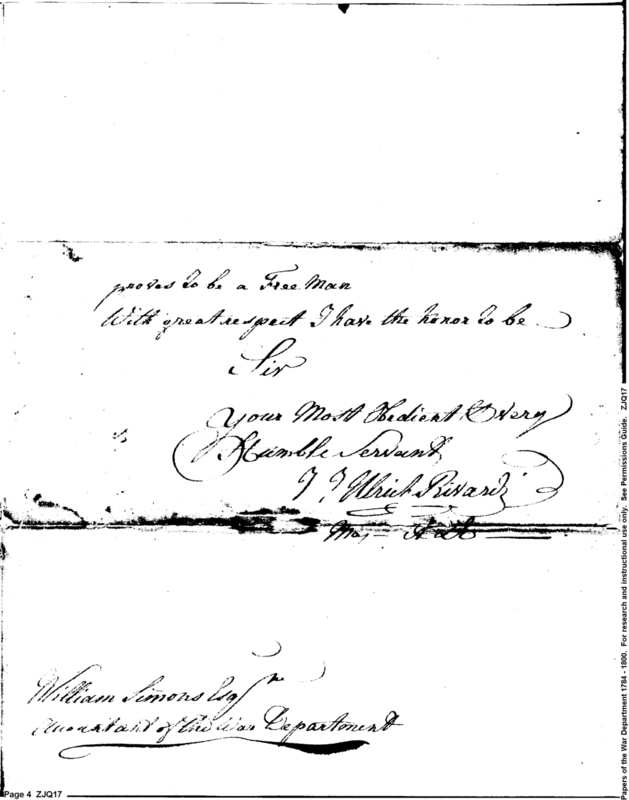 proves to be a Free Man
With great respect I have the honor to be
Sir
Your Most Obedient & very
Humble Servant,
J J Ulrich Rivardi
Maj
William Simons Esqr
Accountant of the War Department
Page 4 ZJQ17
Papers of the War Department 1784 - 1800. For research and instructional use only. See Permissions Guide. ZJQ17